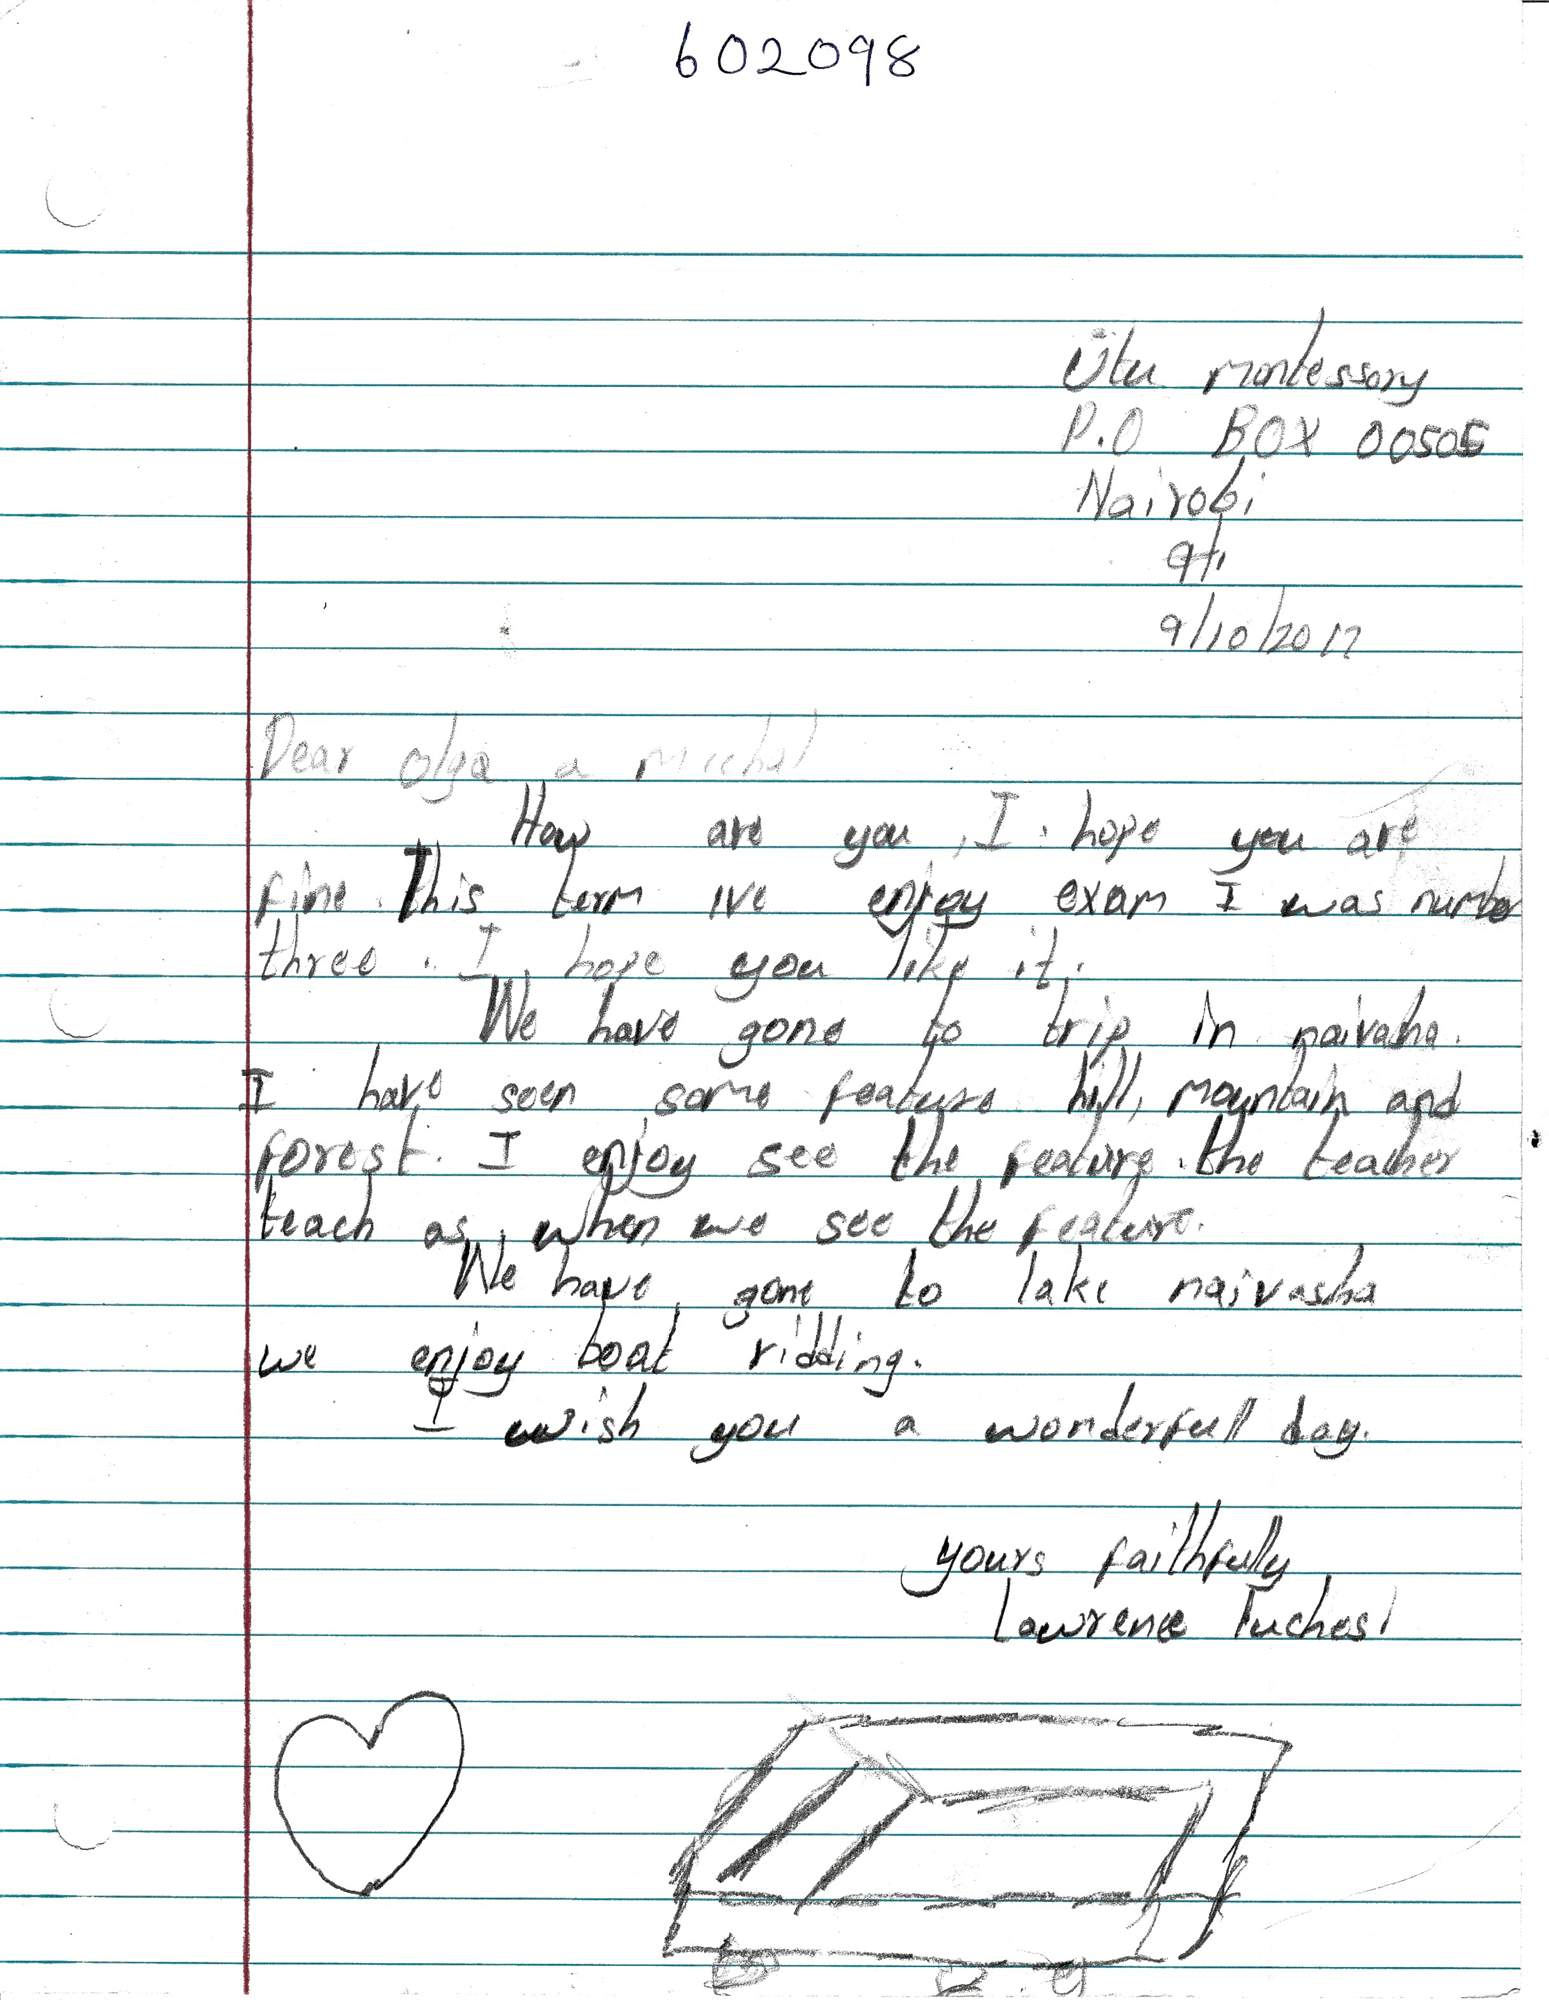 602098
Utu montessory
P.O BOX 00505
Nairobi
9/10/2017
Dear Olga a Michal
How are you, I hope you are
fine. This term ive enjoy exam I was number
three. I hope you like it.
We have gone to trip in naivasha.
I have seen some feature hill, mountain and
forest. I enjoy see the feature. the teacher
teach as, when we see the feature.
We have gone to lake naivasha
we enjoy boat ridding.
I wish you a wonderfull day.
yours faithfully
Lawrence